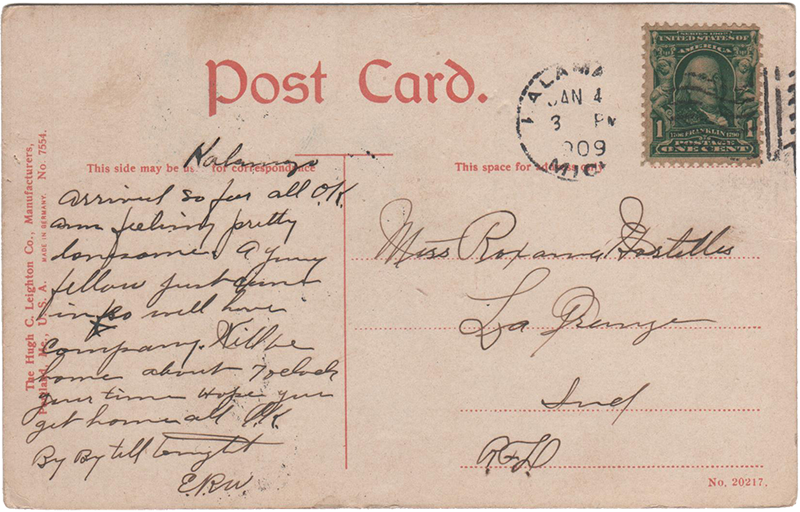 Post Card.
KALAMA
JAN 4
3 PM
1909
MICH
SERIES 1902
UNITED STATES OF
AMERICA
1 FRANKLIN 1
POSTAGE
ONE CENT
This side may be us for correspondence
This space for address only
The Hugh C. Leighton Co., Manufacturers,
Portland, Me., U. S. A. MADE IN GERMANY. No 7554.
Kalamazo
arrived so far all O.K.
am feeling pretty
lonsome. a young
fellow just came
in so will have
company. Will be
home about 7 oclock
your time Hope you
get home all O.K.
By By till tonight
E.R.W.
Miss Roxana Hostetler
La Grange
Ind
RFD
No. 20217.